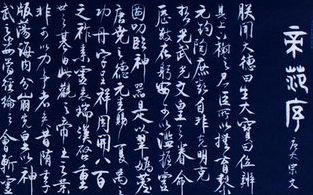 帝範序
唐太宗文
朕聞大德曰生大寶曰位辨
其上下樹之君臣所以撫育黎
元鈞陶庶類自非克明克
哲允武允文皇天眷命
歷數在躬安可以濫握靈
圖叨臨神器是以翠媯薦
唐堯之德元圭錫夏禹之
功丹字呈祥周開八百
之祚素靈表瑞漢啟重
世之基由此觀之帝王之業
非可以力爭者矣昔隋季
版蕩海內分崩先皇以神
武之姿當經綸之會斬靈